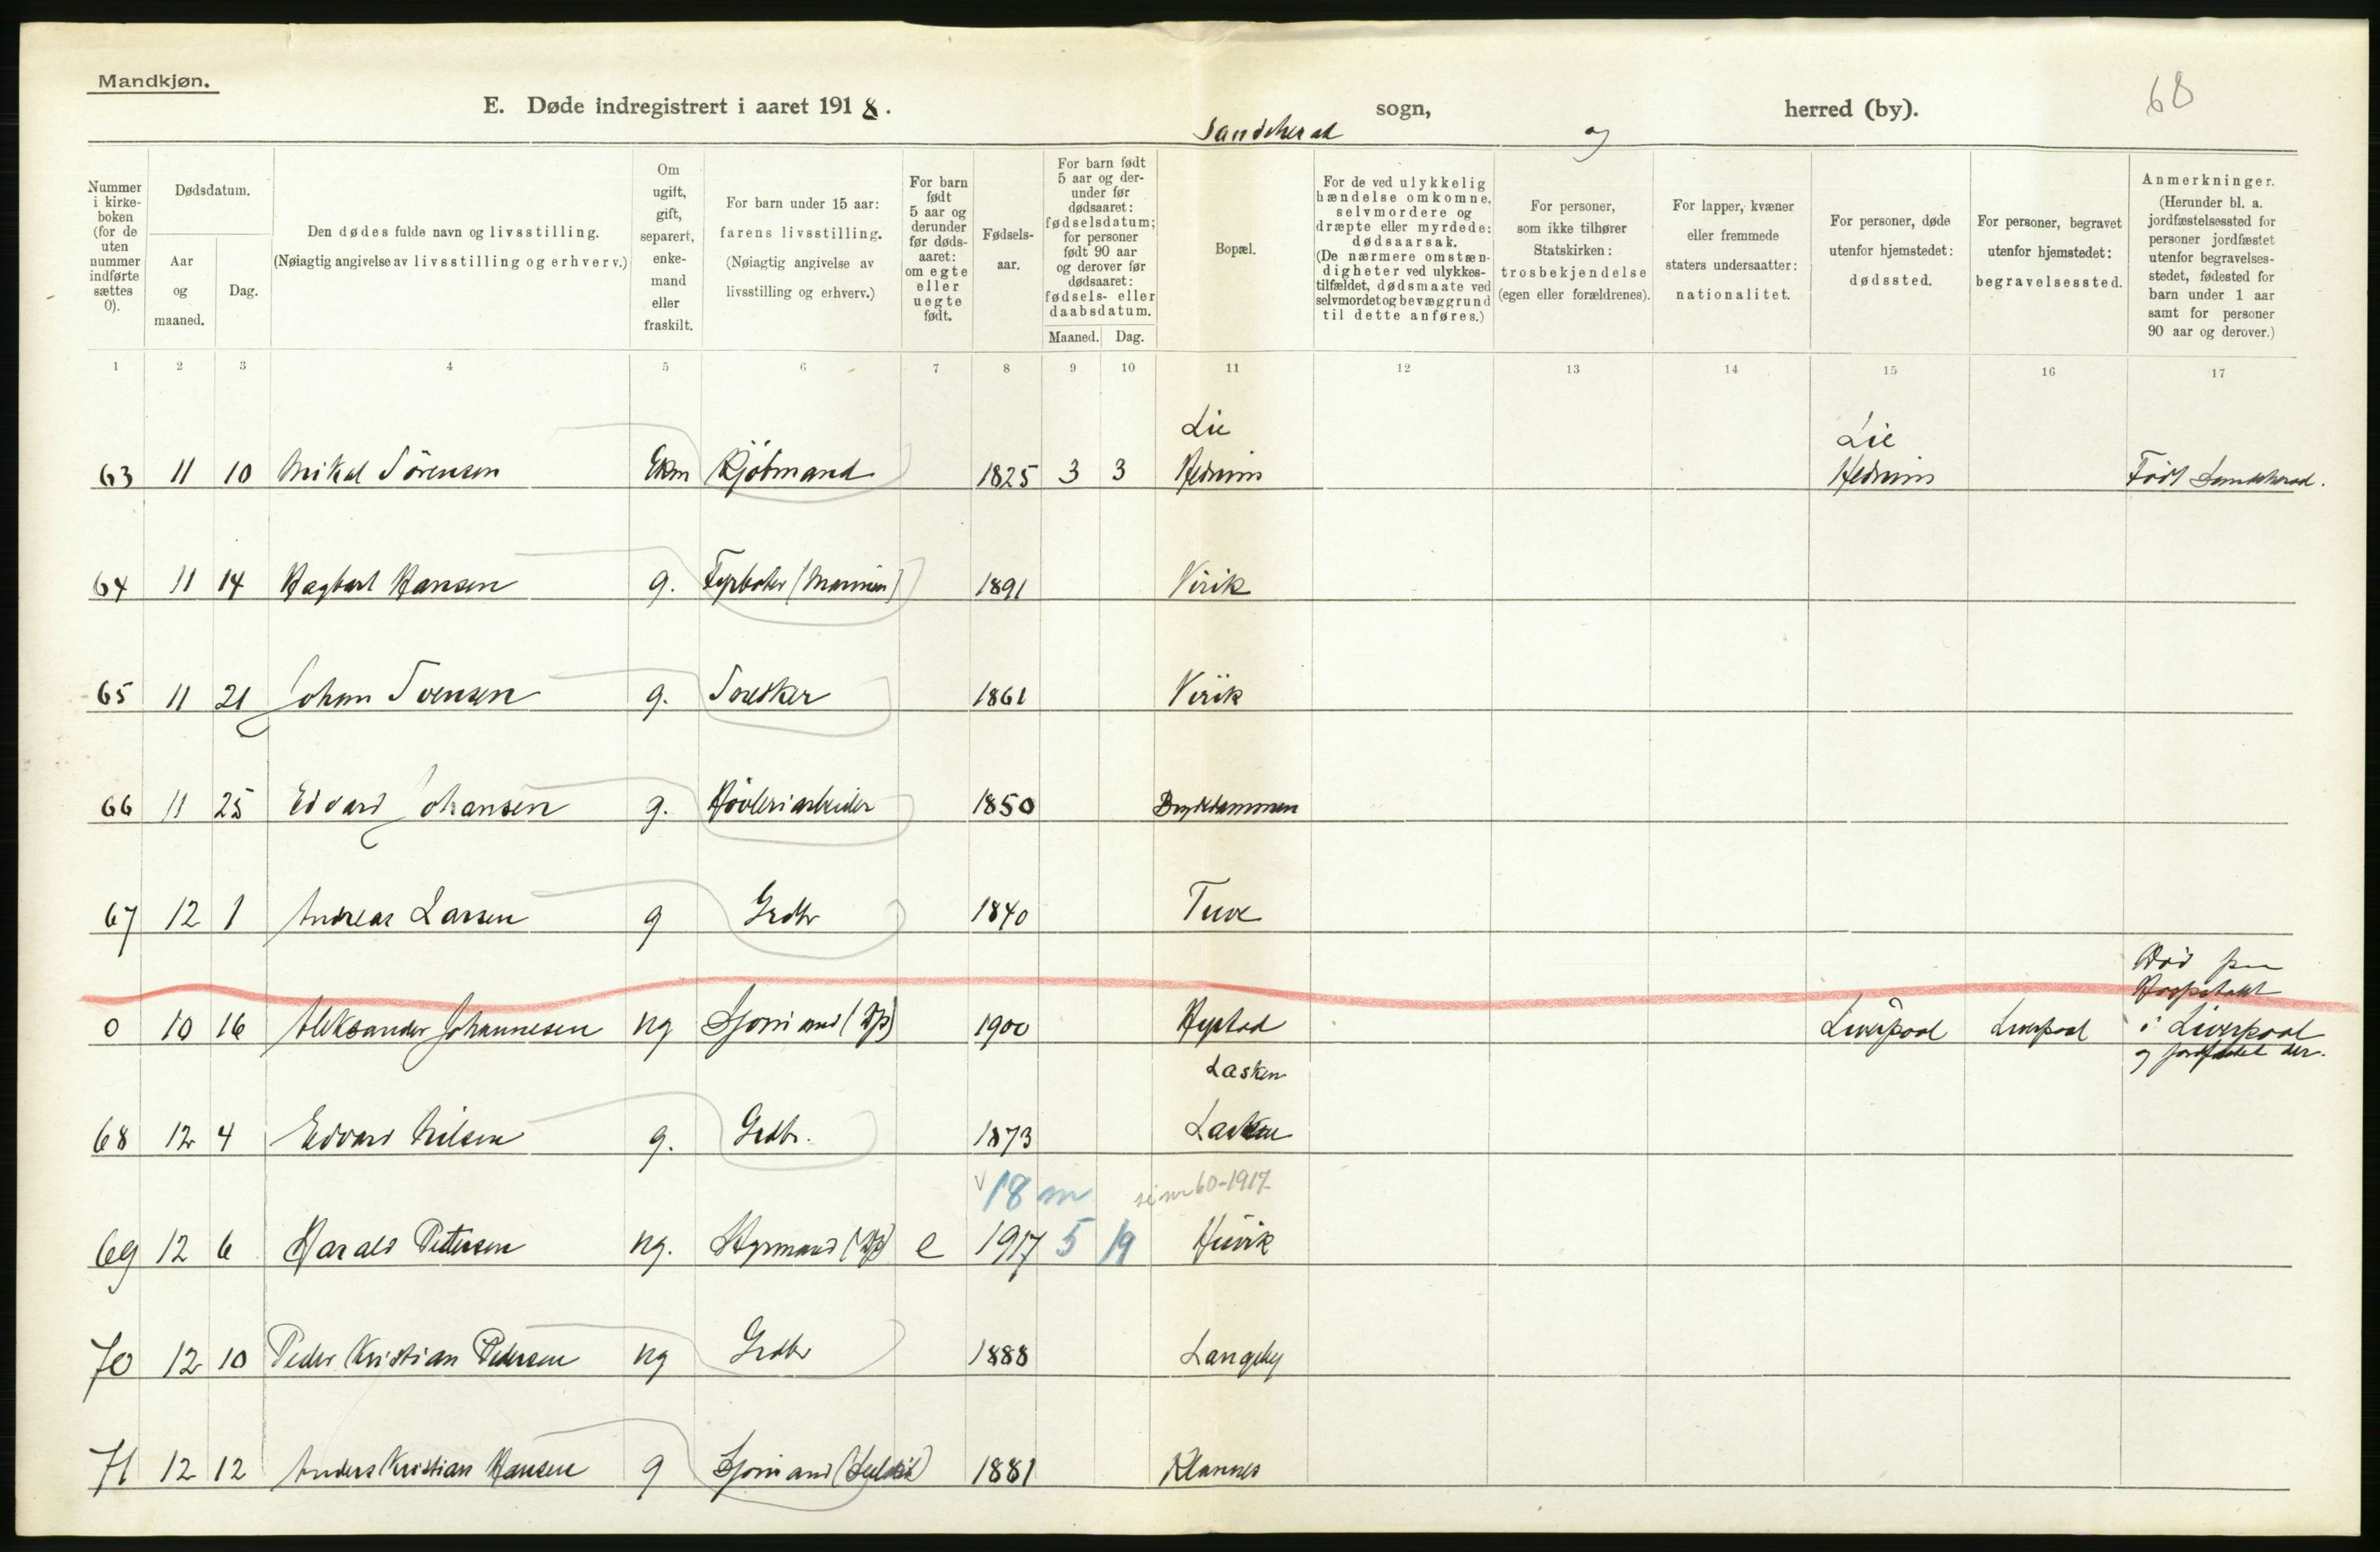 Mandkjøn.
68
E. Døde indregistrert i aaret 1918.
sogn,
herred (by).
Sandeherad
og
Nummer i kirke-boken (for de uten nummer indførte sættes 0).
Dødsdatum.
Aar og maaned.
Dag.
Den dødes fulde navn og livsstilling.
(Nøiagtig angivelse av livsstilling og erhverv.)
Om ugift, gift, separert, enke-mand eller fraskilt.
For barn under 15 aar: farens livsstilling. (Nøiagtig angivelse av livsstilling og erhverv.)
For barn født 5 aar og derunder før døds-aaret: om egte eller uegte født.
Fødsels-aar.
For barn født 5 aar og der-under før dødsaaret: fødselsdatum; for personer født 90 aar og derover før dødsaaret: fødsels- eller daabsdatum.
Maaned.
Dag.
Bopæl.
For de ved ulykkelig hændelse omkomne, selvmordere og dræpte eller myrdede: dødsaarsak. (De nærmere omstæn-digheter ved ulykkes-tilfældet, dødsmaate ved selvmordet og bevæggrund til dette anføres.)
For personer, som ikke tilhører Statskirken: trosbekjendelse (egen eller forældrenes).
For lapper, kvæner eller fremmede staters undersaatter: nationalitet.
For personer, døde utenfor hjemstedet: dødssted.
For personer, begravet utenfor hjemstedet: begravelsessted.
Anmerkninger. (Herunder bl. a. jordfæstelsessted for personer jordfæstet utenfor begravelses-stedet, fødested for barn under 1 aar samt for personer 90 aar og derover.)
1 2 3 4 5 6 7 8 9 10 11 12 13 14 15 16 17
Lie Lie
63 11 10 Mikal Sørensen Ekm Kjøbmand 1825 3 3 Hedrum Hedrum Født Sandeherad.
64 11 14 Hagbart Hansen g. Fyrbøter (Marinen) 1891 Virik
65 11 21 Johan Svensen g. Snedker 1861 Virik
66 11 25 Edvard Johansen g. Høvleriarbeider 1850 Bryddammen
67 12 1 Andreas Larsen g Grdbr 1840 Tuve
Død paa
Hospitalet
0 10 16 Aleksander Johannesen ug Sjømand (Dp) 1900 Hystad Liverpool Liverpool i Liverpool
og jordfæstet der.
Lasken
68 12 4 Edvard Nilsen g. Grdbr. 1873 Lasken
18 m se nr 60-1917
69 12 6 Harald Pettersen ug. Styrmand (Dp) e 1917 5 19 Huvik
70 12 10 Peder Kristian Pedersen ug Grdbr 1888 Langeby
71 12 12 Anders Kristian Hansen g Sjømand 1881 Klavnes